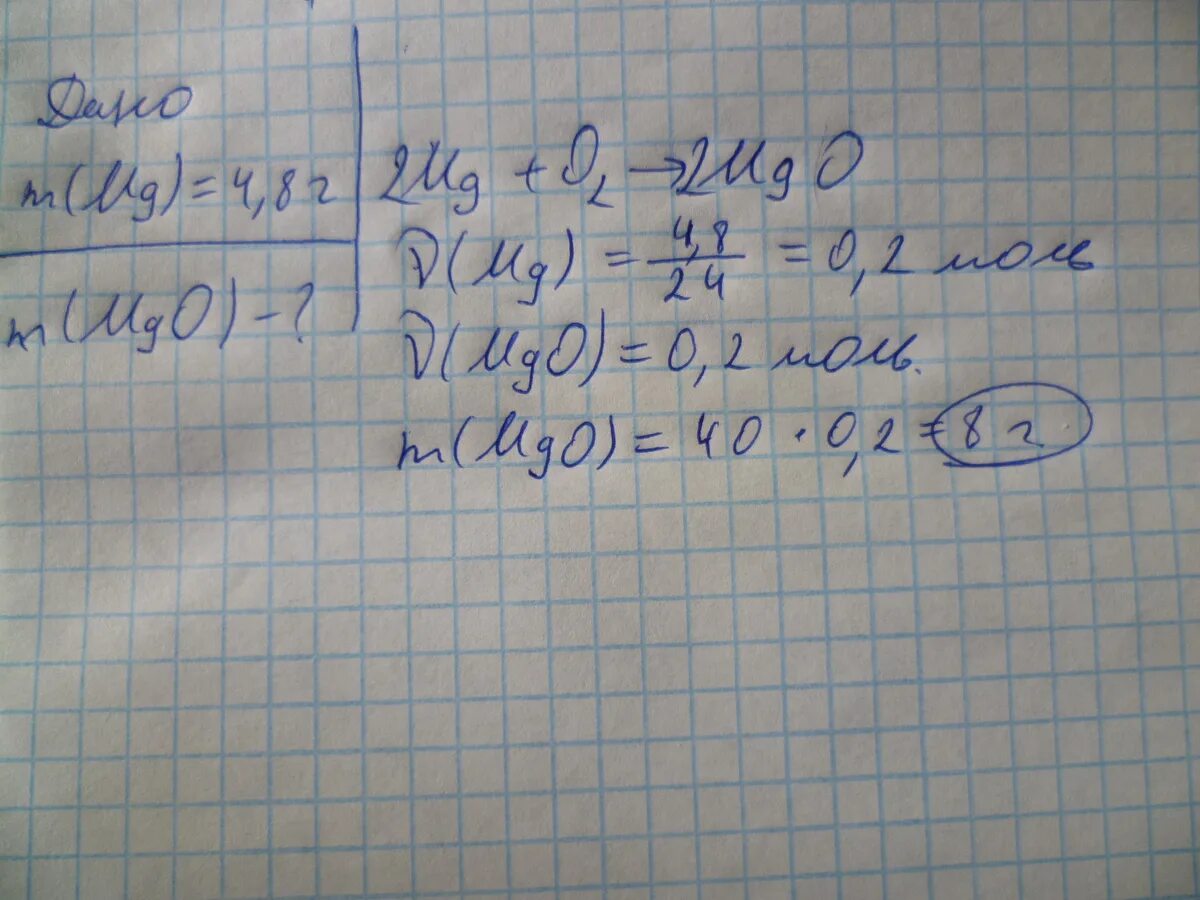 Дано
m(Mg)=4,8 г
m(MgO)-?
2Mg + O₂ → 2MgO
ν(Mg) = 4,8/24 = 0,2 моль
ν(MgO) = 0,2 моль.
m(MgO) = 40 · 0,2 = 8 г